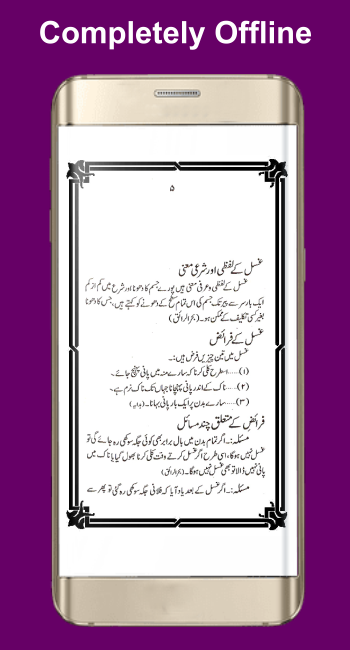 Completely Offline
۵
غسل کے لفظی اور شرعی معنی
غسل کے لفظی و عرفی معنی ہیں پورے جسم کا دھونا اور شرع میں کم از کم
ایک بار سر سے پیر تک جسم کی اس تمام سطح کے دھونے کو کہتے ہیں، جس کا دھونا
بغیر کسی تکلیف کے ممکن ہو۔ (بحر الرائق)
غسل کے فرائض
غسل میں تین چیزیں فرض ہیں:۔
(۱).....اسطرح کلی کرنا کہ سارے منہ میں پانی پہنچ جائے۔
(۲).....ناک کے اندر پانی پہنچانا جہاں تک ناک نرم ہے۔
(۳).....سارے بدن پر ایک بار پانی بہانا۔ (ہدایہ)
فرائض کے متعلق چند مسائل
مسئلہ:۔ اگر تمام بدن میں بال برابر بھی کوئی جگہ سوکھی رہ جائے گی تو
غسل نہیں ہوگا، اسی طرح اگر غسل کرتے وقت کلی کرنا بھول گیا یا ناک میں
پانی نہیں ڈالا تو بھی غسل نہیں ہوگا۔ (بحر الرائق)
مسئلہ:۔ اگر غسل کے بعد یاد آیا کہ فلانی جگہ سوکھی رہ گئی تو پھر سے